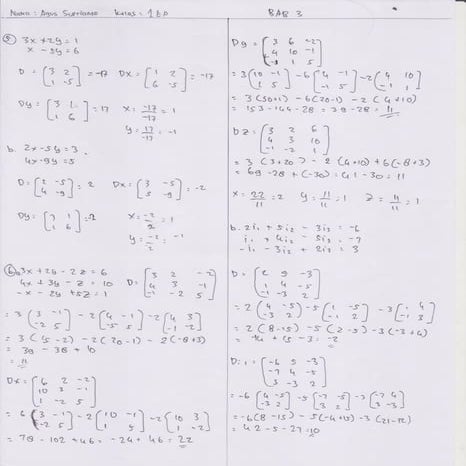 Nama : Agus Suntiono Kelas : 1 EA
BAB 3
5) 3x + 2y = 1
x - 5y = 6
D = [3 2 = -17 Dx = [1 2 = -17
1 -5] 6 -5]
Dy = [3 1 = 17 x = -17/-17 = 1
1 6] y = 17/-17 = -1
b. 2x - 5y = 3
4x - 9y = 5
D = [2 -5 = 2 Dx = [3 -5 = -2
4 -9] 5 -9]
x = -2/2 = 1
y = -2/2 = -1
6) 3x + 2y - 2z = 6
4x + 3y - z = 10
-x - 2y + 5z = 1
D = [3 2 -2
4 3 -1
-1 -2 5]
= 3 [3 -1 - 2 [4 -1 - 2 [4 3
-2 5] -1 -2]
= 3 (15 - 2) - 2 (20 - 1) - 2 (-8 + 3)
= 39 - 38 + 10
= 11
Dx = [6 2 -2
10 3 -1
1 -2 5]
= 6 [3 -1 - 2 [10 -1 - 2 [10 3
-2 5] 1 5] 1 -2]
= 78 - 102 + 46 = -24 + 46 = 22
Dy = [3 6 -2
4 10 -1
-1 1 5]
= 3 [10 -1 - 6 [4 -1 - 2 [4 10
1 5] -1 5] -1 1]
= 3 (50 + 1) - 6 (20 - 1) - 2 (4 + 10)
= 153 - 144 - 28 = 39 - 28 = 11
Dz = [3 2 6
4 3 10
-1 -2 1]
= 3 (3 + 20) - 2 (4 + 10) + 6 (-8 + 3)
= 69 - 28 + (-30) = 41 - 30 = 11
x = 22/11 = 2 y = 11/11 = 1 z = 11/11 = 1
b. 2i1 + 5i2 - 3i3 = -6
i1 + 4i2 - 5i3 = -7
-i1 - 3i2 + 2i3 = 3
D = [2 5 -3
1 4 -5
-1 -3 2]
= 2 [4 -5 - 5 [1 -5 - 3 [1 4
-3 2] -1 2] -1 3]
= 2 (8 - 15) - 5 (2 - 5) - 3 (-3 + 4)
= -14 + 15 - 3 = -2
Di1 = [-6 5 -3
-7 4 -5
3 -3 2]
= -6 [4 -5 - 5 [-7 -5 - 3 [-7 4
-3 2] 3 2] 3 -3]
= -6 (8 - 15) - 5 (-14 + 15) - 3 (21 - 12)
= 42 - 5 - 27 = 10